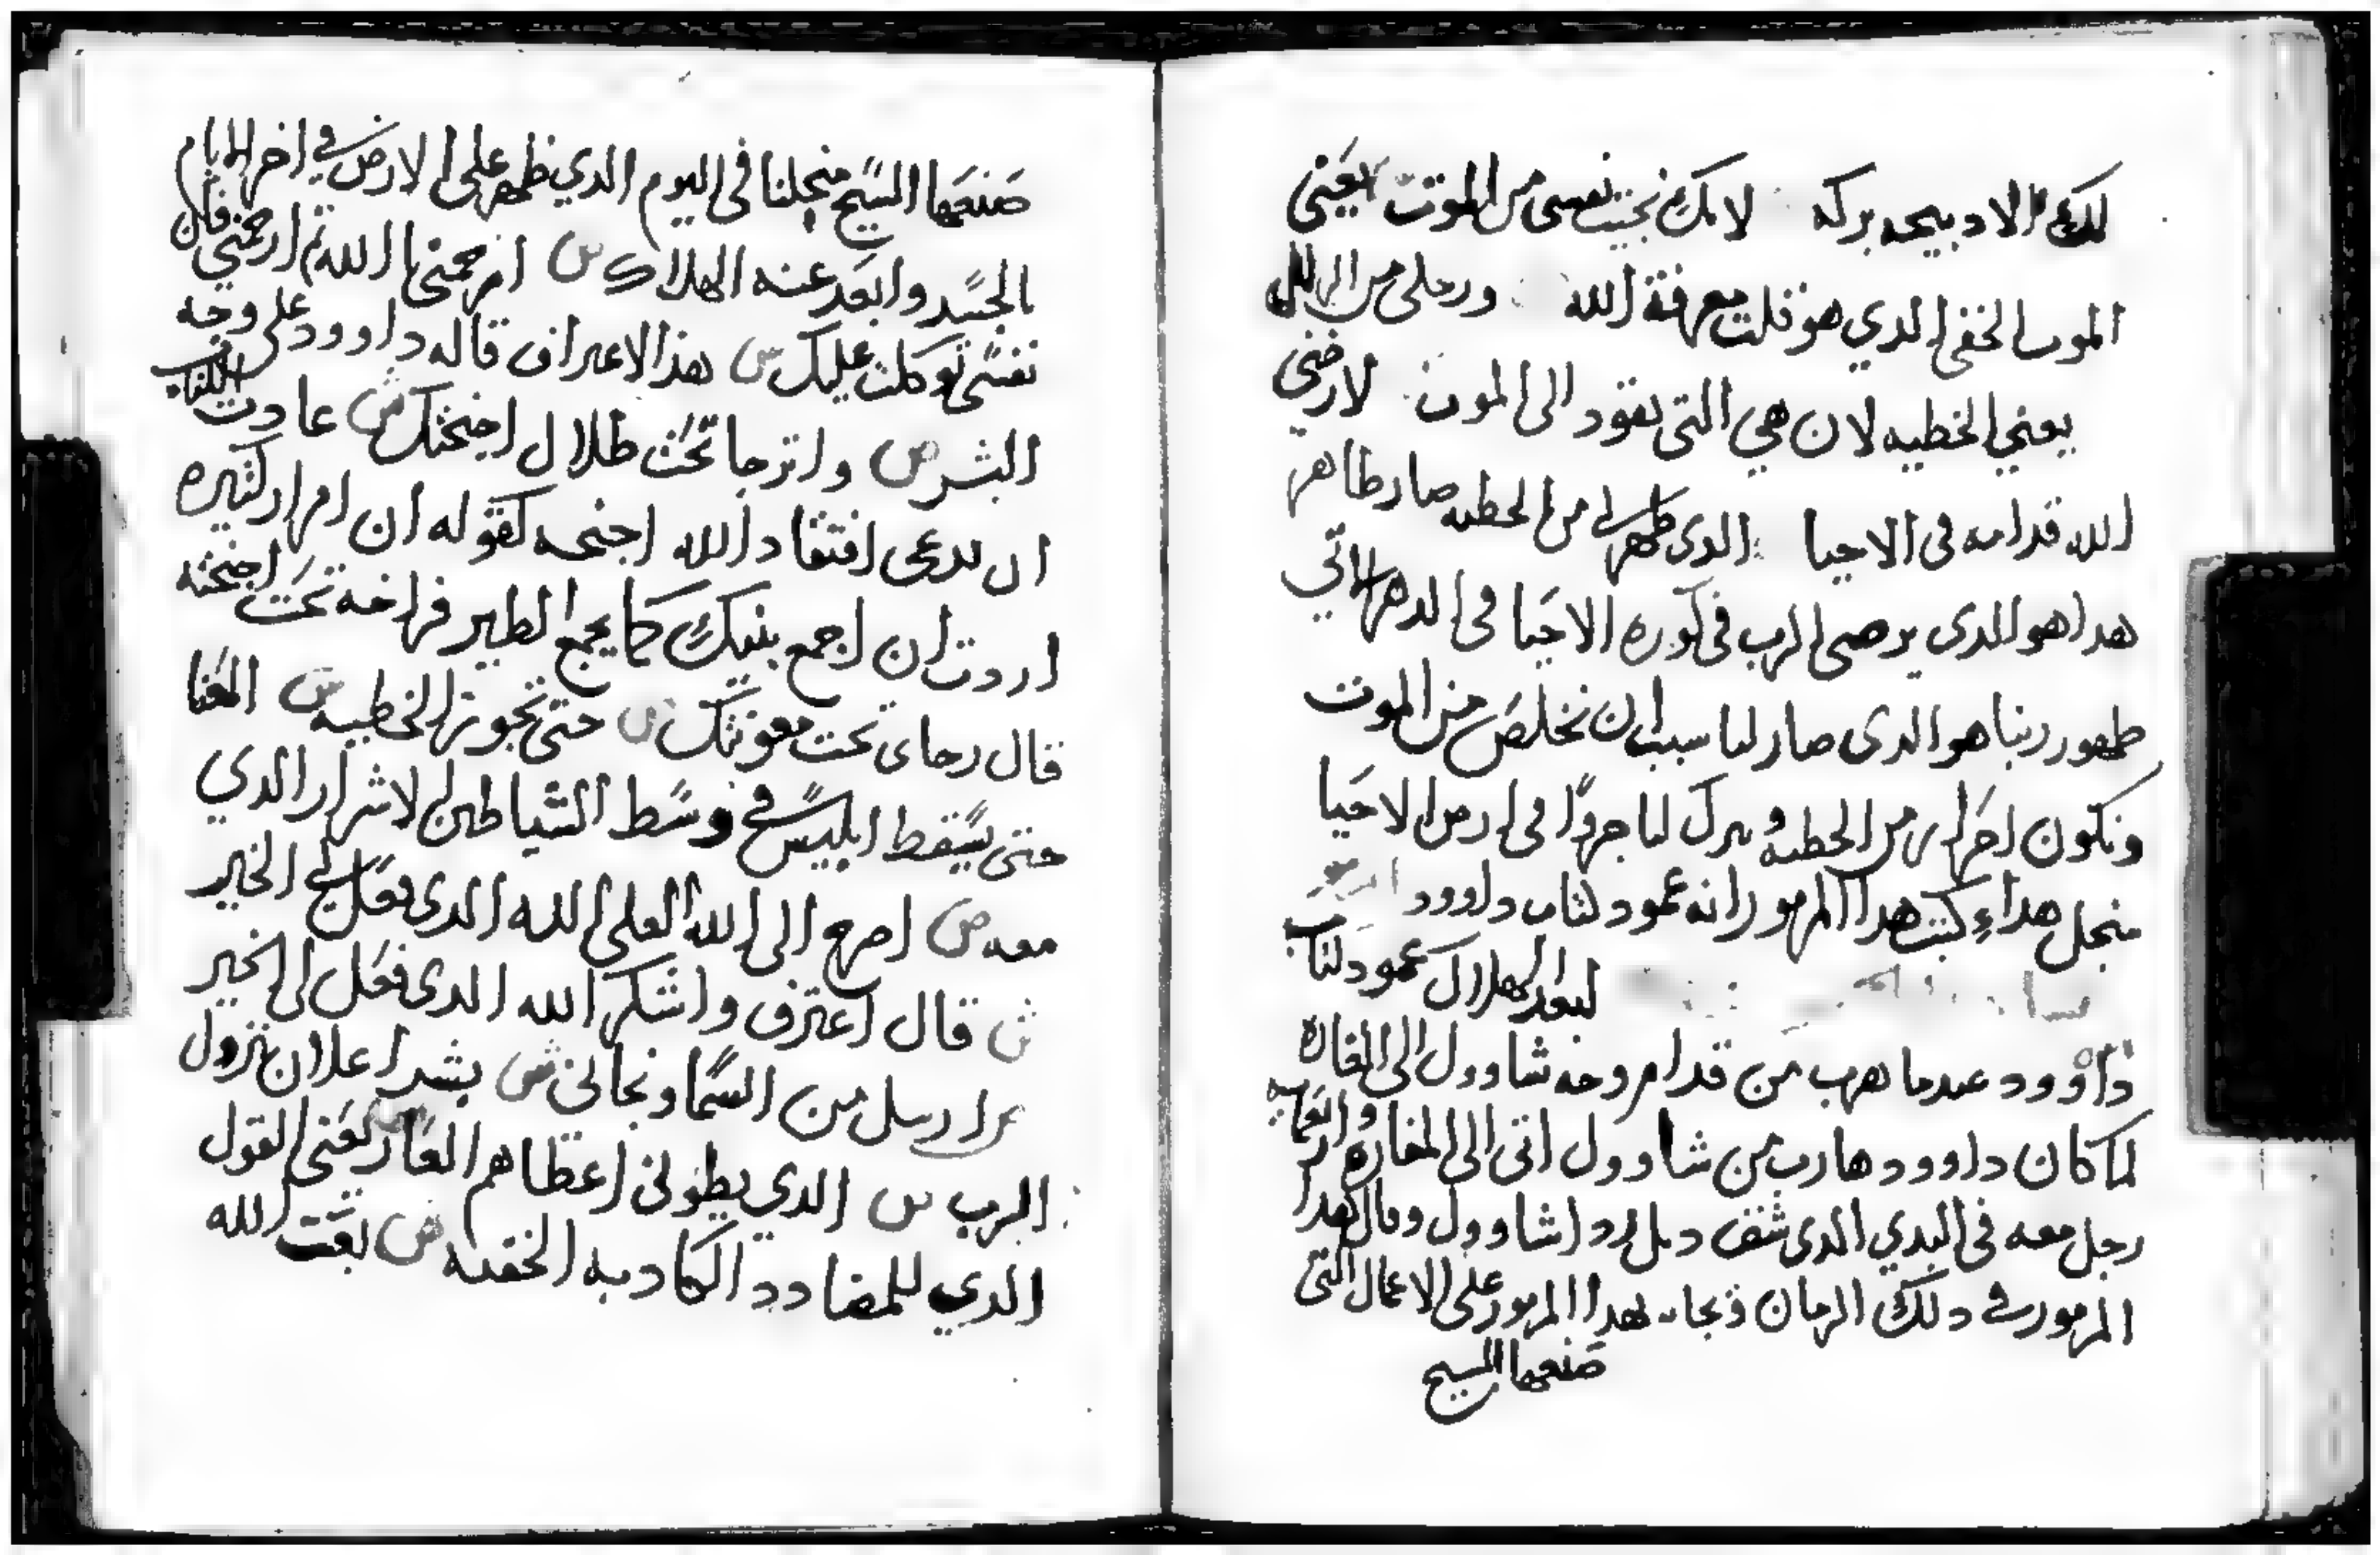 لك الادبيحه بركه لانك نجيت نفسى من الموت يعنى
الموت الخفى الدي هو قلت معرفة الله ورجلى من الزلل
يعني الخطيه لان هي التى تقود الى الموت لارضى
الله قدامه فى الاحيا الدى طهر لى من الحطيه صار طاهر
هدا هو الدى يرصى الرب فى كوره الاحيا فى الدهر الاتي
طهور ربنا هو الدى صار لنا سبب ان نخلص من الموت
ونكون احرار من الحطيه و يترك لنا جزوًا فى ارص الاحيا
منجل هداء كتب هدا المزمور انه عمود لتاب داوود
لبعد الهلاك عمود لتاب
داوود عندما هرب من قدام وجه شاوول الى المغاره
لما كان داوود هارب من شاوول اتى الى المغاره و
رجل معه فى البدي الدى شقف ديل ردا شاوول وقال هدا
المزمور في دلك الزمان هدا المزمور على الاعمال التى
صنعها المسيح
صنعها المسيح منجلنا فى اليوم الدي ظهر على الارض في اخر الايام
بالجسد وابعد عنه الهلاك ص ارحمنى يا الله ثم ارحمني فان
نفسى توكلت عليك س هذا الاعتراف قاله داوود على وجه
البشر ص واترجا تحت طلال اجنحتك ش عادت الكتاب
ان يدعى افتقاد الله اجنحه كقوله ان امرار كثيره
اردت ان اجمع بنيك كما يجمع الطير فراخه تحت اجنحته
قال رجاى تحت معونتك ص حتى تجوز الخطيه ش المعنا
حتى يسقط ابليس في وسط الشياطين الاشرار الدي
معه ص اصرخ الى الله العلى الله الدى فعل لي الخير
ش قال اعترف واشكر الله الدى فعل لى الخير
ص ارسل من السما ونجاني ش بشر اعلان بنزول
الرب ص الدي يطوني اعطاهم العار يعنى القول
الدي للمضادد الكادبه الخفيه ص بعت الله